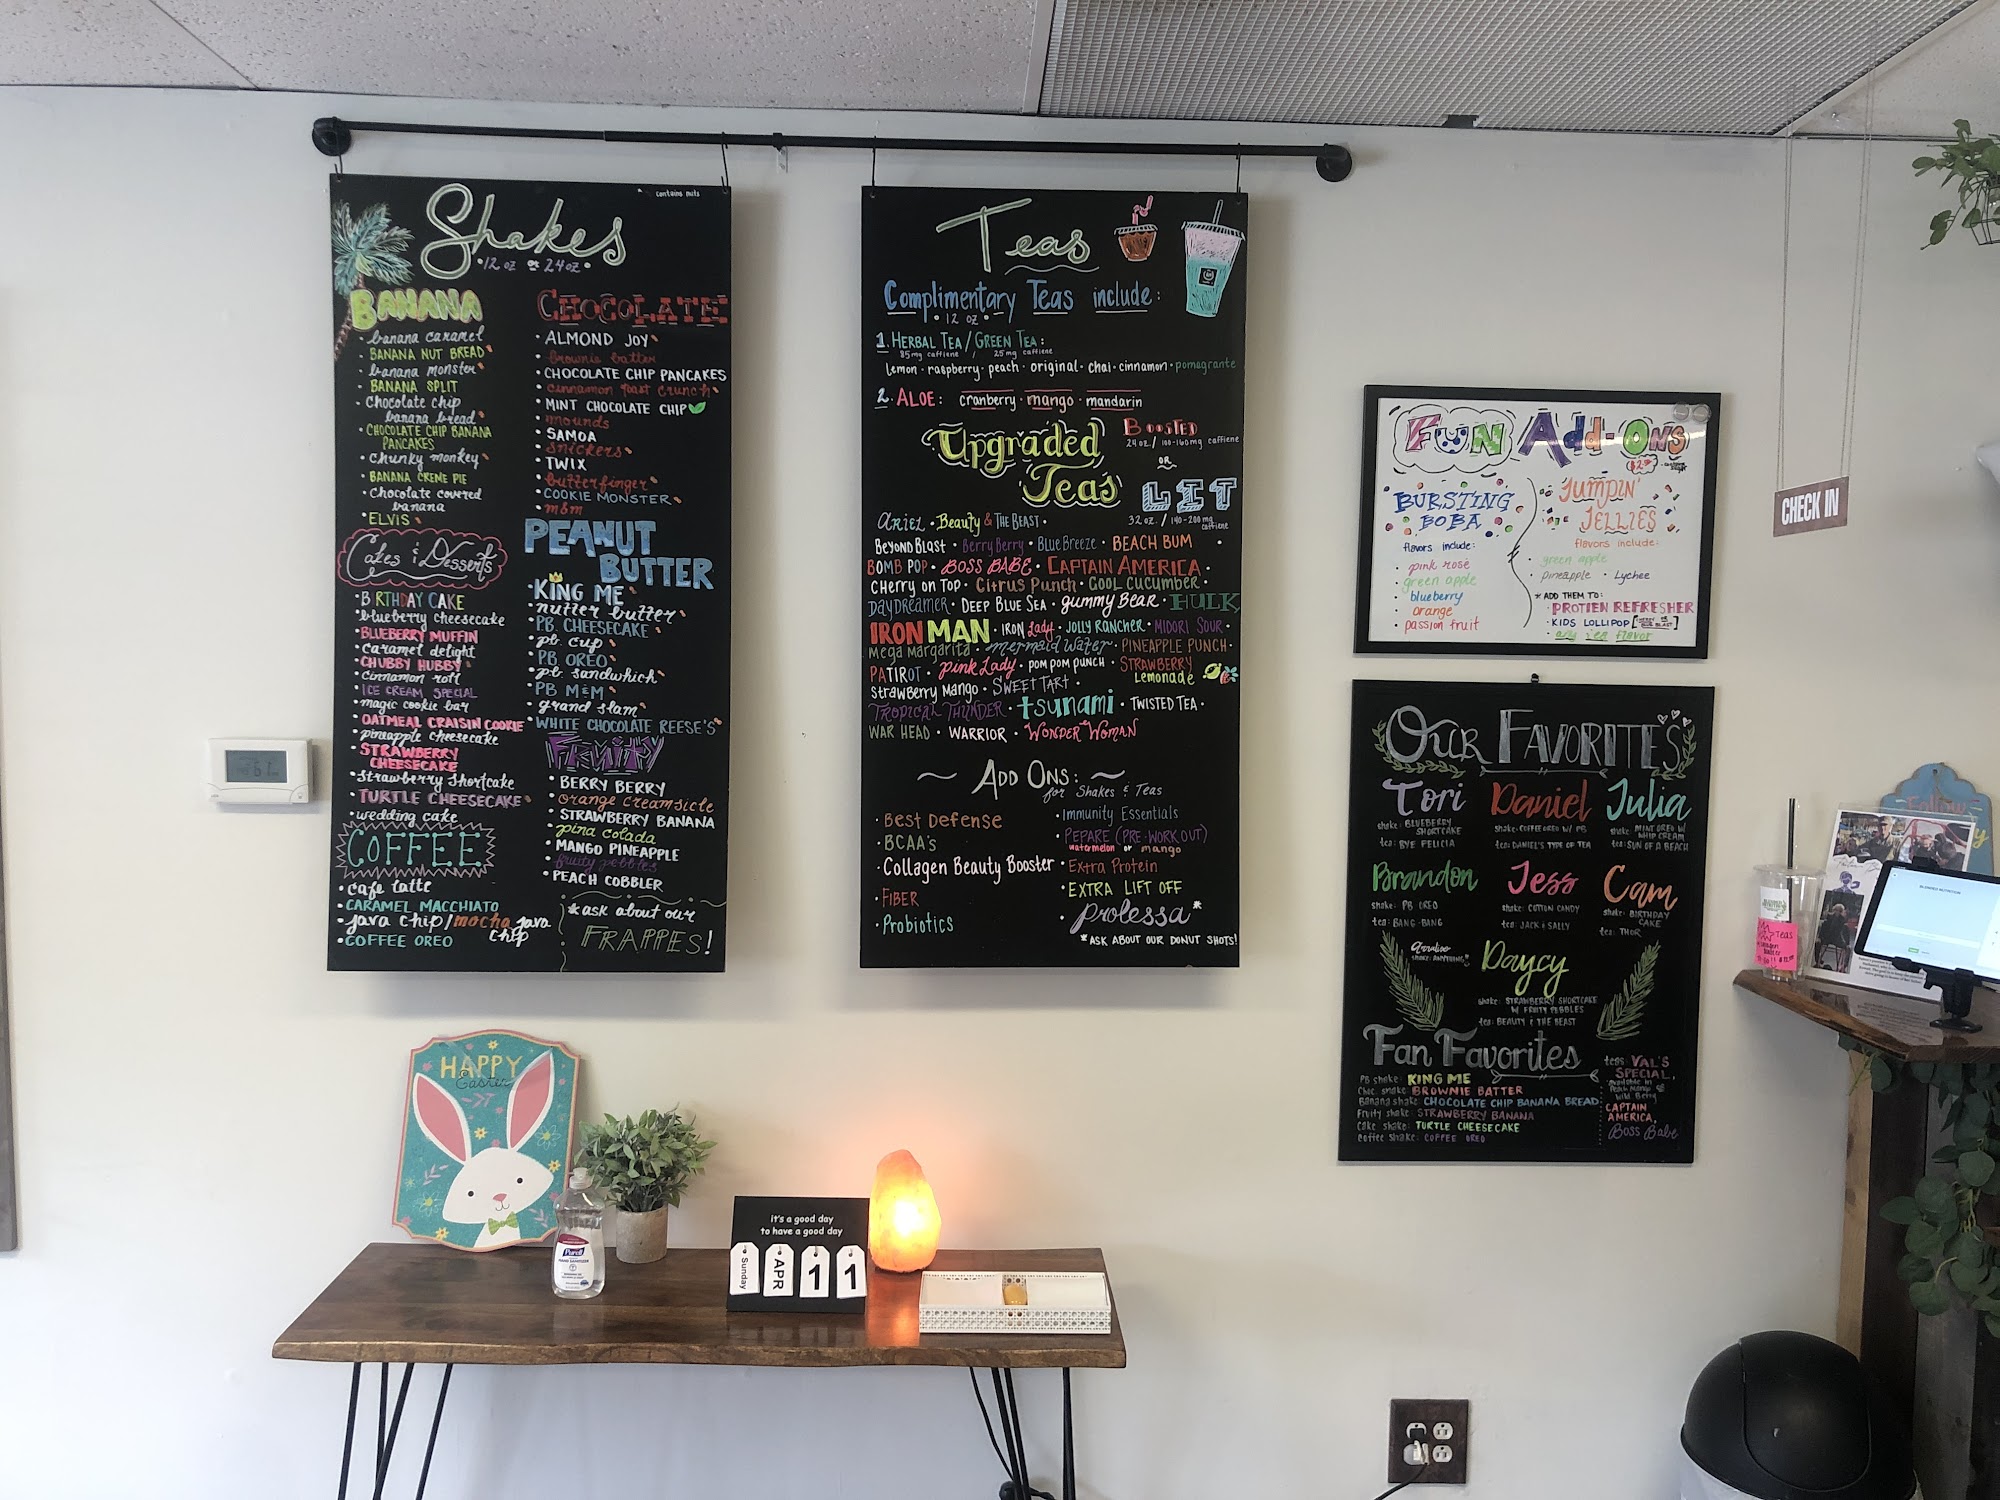 contains nuts
Shakes
12 oz or 24 oz
BANANA
banana caramel
BANANA NUT BREAD
banana monster
BANANA SPLIT
Chocolate chip
banana bread
CHOCOLATE CHIP BANANA
PANCAKES
chunky monkey
BANANA CREME PIE
Chocolate covered
banana
ELVIS
Cakes & Desserts
BIRTHDAY CAKE
blueberry cheesecake
BLUEBERRY MUFFIN
Caramel delight
CHUBBY HUBBY
Cinnamon roll
ICE CREAM SPECIAL
magic cookie bar
OATMEAL CRAISIN COOKIE
pineapple cheesecake
STRAWBERRY
CHEESECAKE
Strawberry Shortcake
TURTLE CHEESECAKE
wedding cake
COFFEE
Cafe latte
CARAMEL MACCHIATO
java chip/mocha java
chip
COFFEE OREO
CHOCOLATE
ALMOND JOY
brownie batter
CHOCOLATE CHIP PANCAKES
Cinnamon Toast Crunch
MINT CHOCOLATE CHIP
mounds
SAMOA
Snickers
TWIX
butterfinger
COOKIE MONSTER
m&m
PEANUT
BUTTER
KING ME
nutter butter
PB. CHEESECAKE
pb. cup
PB OREO
pb. sandwhich
PB M&M
grand slam
WHITE CHOCOLATE REESE'S
FRUITY
BERRY BERRY
orange creamsicle
STRAWBERRY BANANA
pina colada
MANGO PINEAPPLE
fruity pebbles
PEACH COBBLER
*ask about our
FRAPPES!
Teas
Complimentary Teas include:
12 oz
1. HERBAL TEA / GREEN TEA:
85mg caffiene / 25mg caffiene
lemon · raspberry · peach · original · chai · cinnamon · pomegrante
2. ALOE: cranberry · mango · mandarin
Upgraded
Teas
BOOSTED
24 oz / 100-160mg caffiene
OR
LIT
32 oz. / 140-200mg
caffiene
Ariel · Beauty & THE BEAST ·
BEYOND BLAST · Berry Berry · BLUE BREEZE · BEACH BUM ·
BOMB POP · BOSS BABE · CAPTAIN AMERICA ·
CHERRY ON TOP · CITRUS PUNCH · COOL CUCUMBER ·
DAYDREAMER · DEEP BLUE SEA · gummy Bear · HULK
IRON MAN · IRON lady · JOLLY RANCHER · MIDORI SOUR ·
MEGA MARGARITA · mermaid water · PINEAPPLE PUNCH ·
PATIROT · pink Lady · POM POM PUNCH · STRAWBERRY
LEMONADE
STRAWBERRY MANGO · SWEETTART ·
TROPICAL THUNDER · tsunami · TWISTED TEA ·
WAR HEAD · WARRIOR · WONDER WOMAN
ADD ONS:
for Shakes & Teas
BEST DEFENSE
BCAA's
Collagen Beauty Booster
FIBER
Probiotics
Immunity Essentials
PEPARE (PRE-WORKOUT)
watermelon or mango
EXTRA PROTEIN
EXTRA LIFT OFF
prolessa*
*ASK ABOUT OUR DONUT SHOTS!
FUN ADD-ONS
BURSTING
BOBA
flavors include:
pink rosé
green apple
blueberry
orange
passion fruit
JUMPIN'
JELLIES
flavors include:
green apple
pineapple · Lychee
* ADD THEM TO:
PROTIEN REFRESHER
KIDS LOLLIPOP
any tea flavor
CHECK IN
OUR FAVORITES
Tori
shake: BLUEBERRY
SHORTCAKE
tea: BYE FELICIA
Daniel
shake: COFFEE OREO W/ PB
tea: DANIEL'S TYPE OF TEA
Julia
shake: MINT OREO W/
WHIP CREAM
tea: SUN OF A BEACH
Brandon
shake: PB OREO
tea: BANG-BANG
Jess
shake: COTTON CANDY
tea: JACK & SALLY
Cam
shake: BIRTHDAY
CAKE
tea: THOR
shake: ANYTHING
Daycy
shake: STRAWBERRY SHORTCAKE
W/ FRUITY PEBBLES
tea: BEAUTY & THE BEAST
Fan Favorites
PB shake: KING ME
Choc. shake: BROWNIE BATTER
Banana shake: CHOCOLATE CHIP BANANA BREAD
Fruity shake: STRAWBERRY BANANA
Cake shake: TURTLE CHEESECAKE
Coffee shake: COFFEE OREO
teas: VAL'S
SPECIAL,
CAPTAIN
AMERICA,
Boss Babe
HAPPY
Easter
Purell
it's a good day
to have a good day
Sunday
APR
1
1